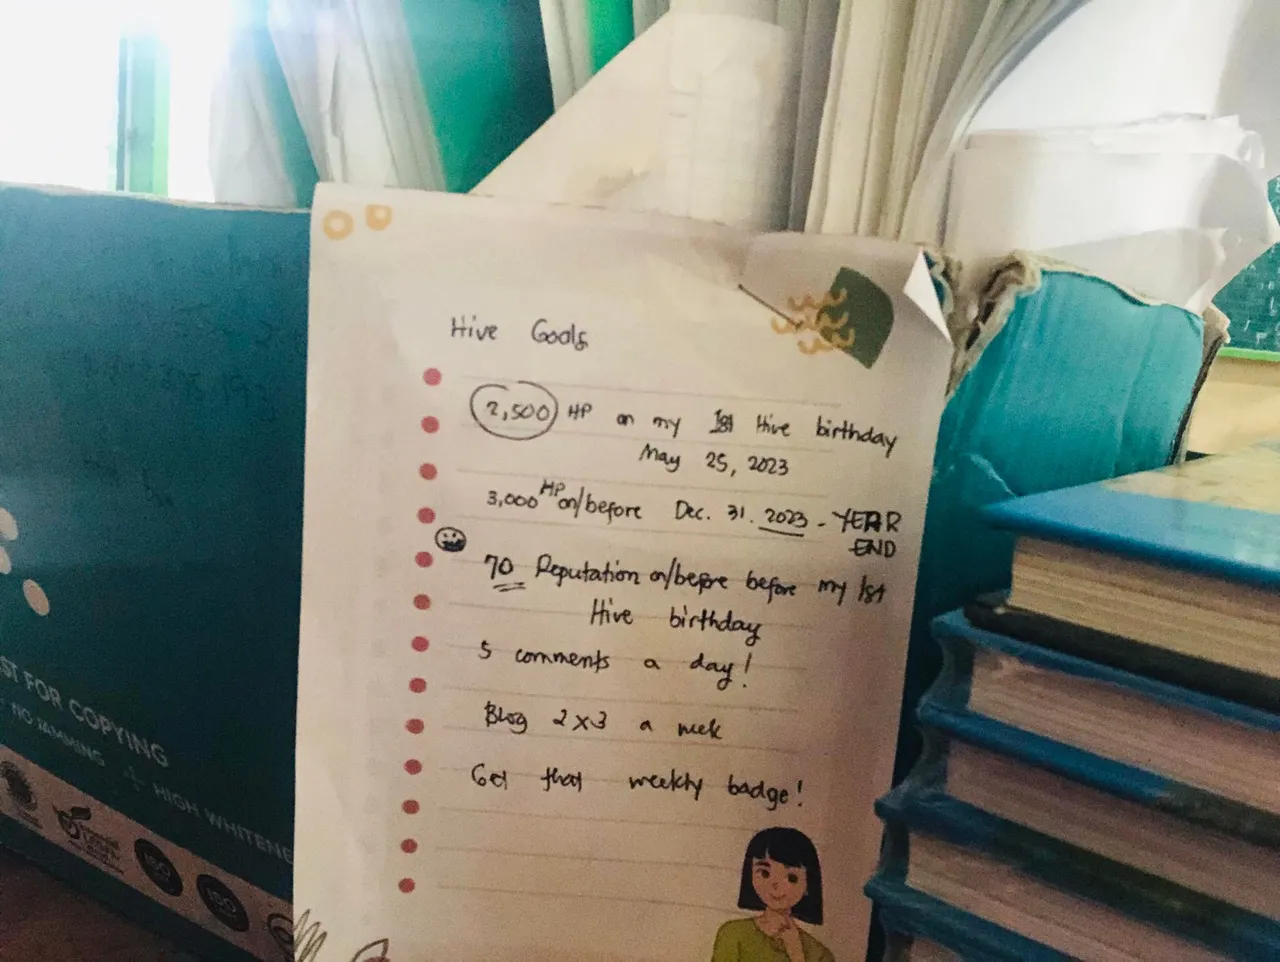 Hive Goals
2,500 HP on my 1st Hive birthday
May 25, 2023
3,000 HP on/before Dec. 31. 2023 - YEAR
END
70 Reputation on/before before my 1st
Hive birthday
5 comments a day!
Blog 2x3 a week
Get that weekly badge!
ST FOR COPYING
NO JAMMING + HIGH WHITENE
ISO
ISO